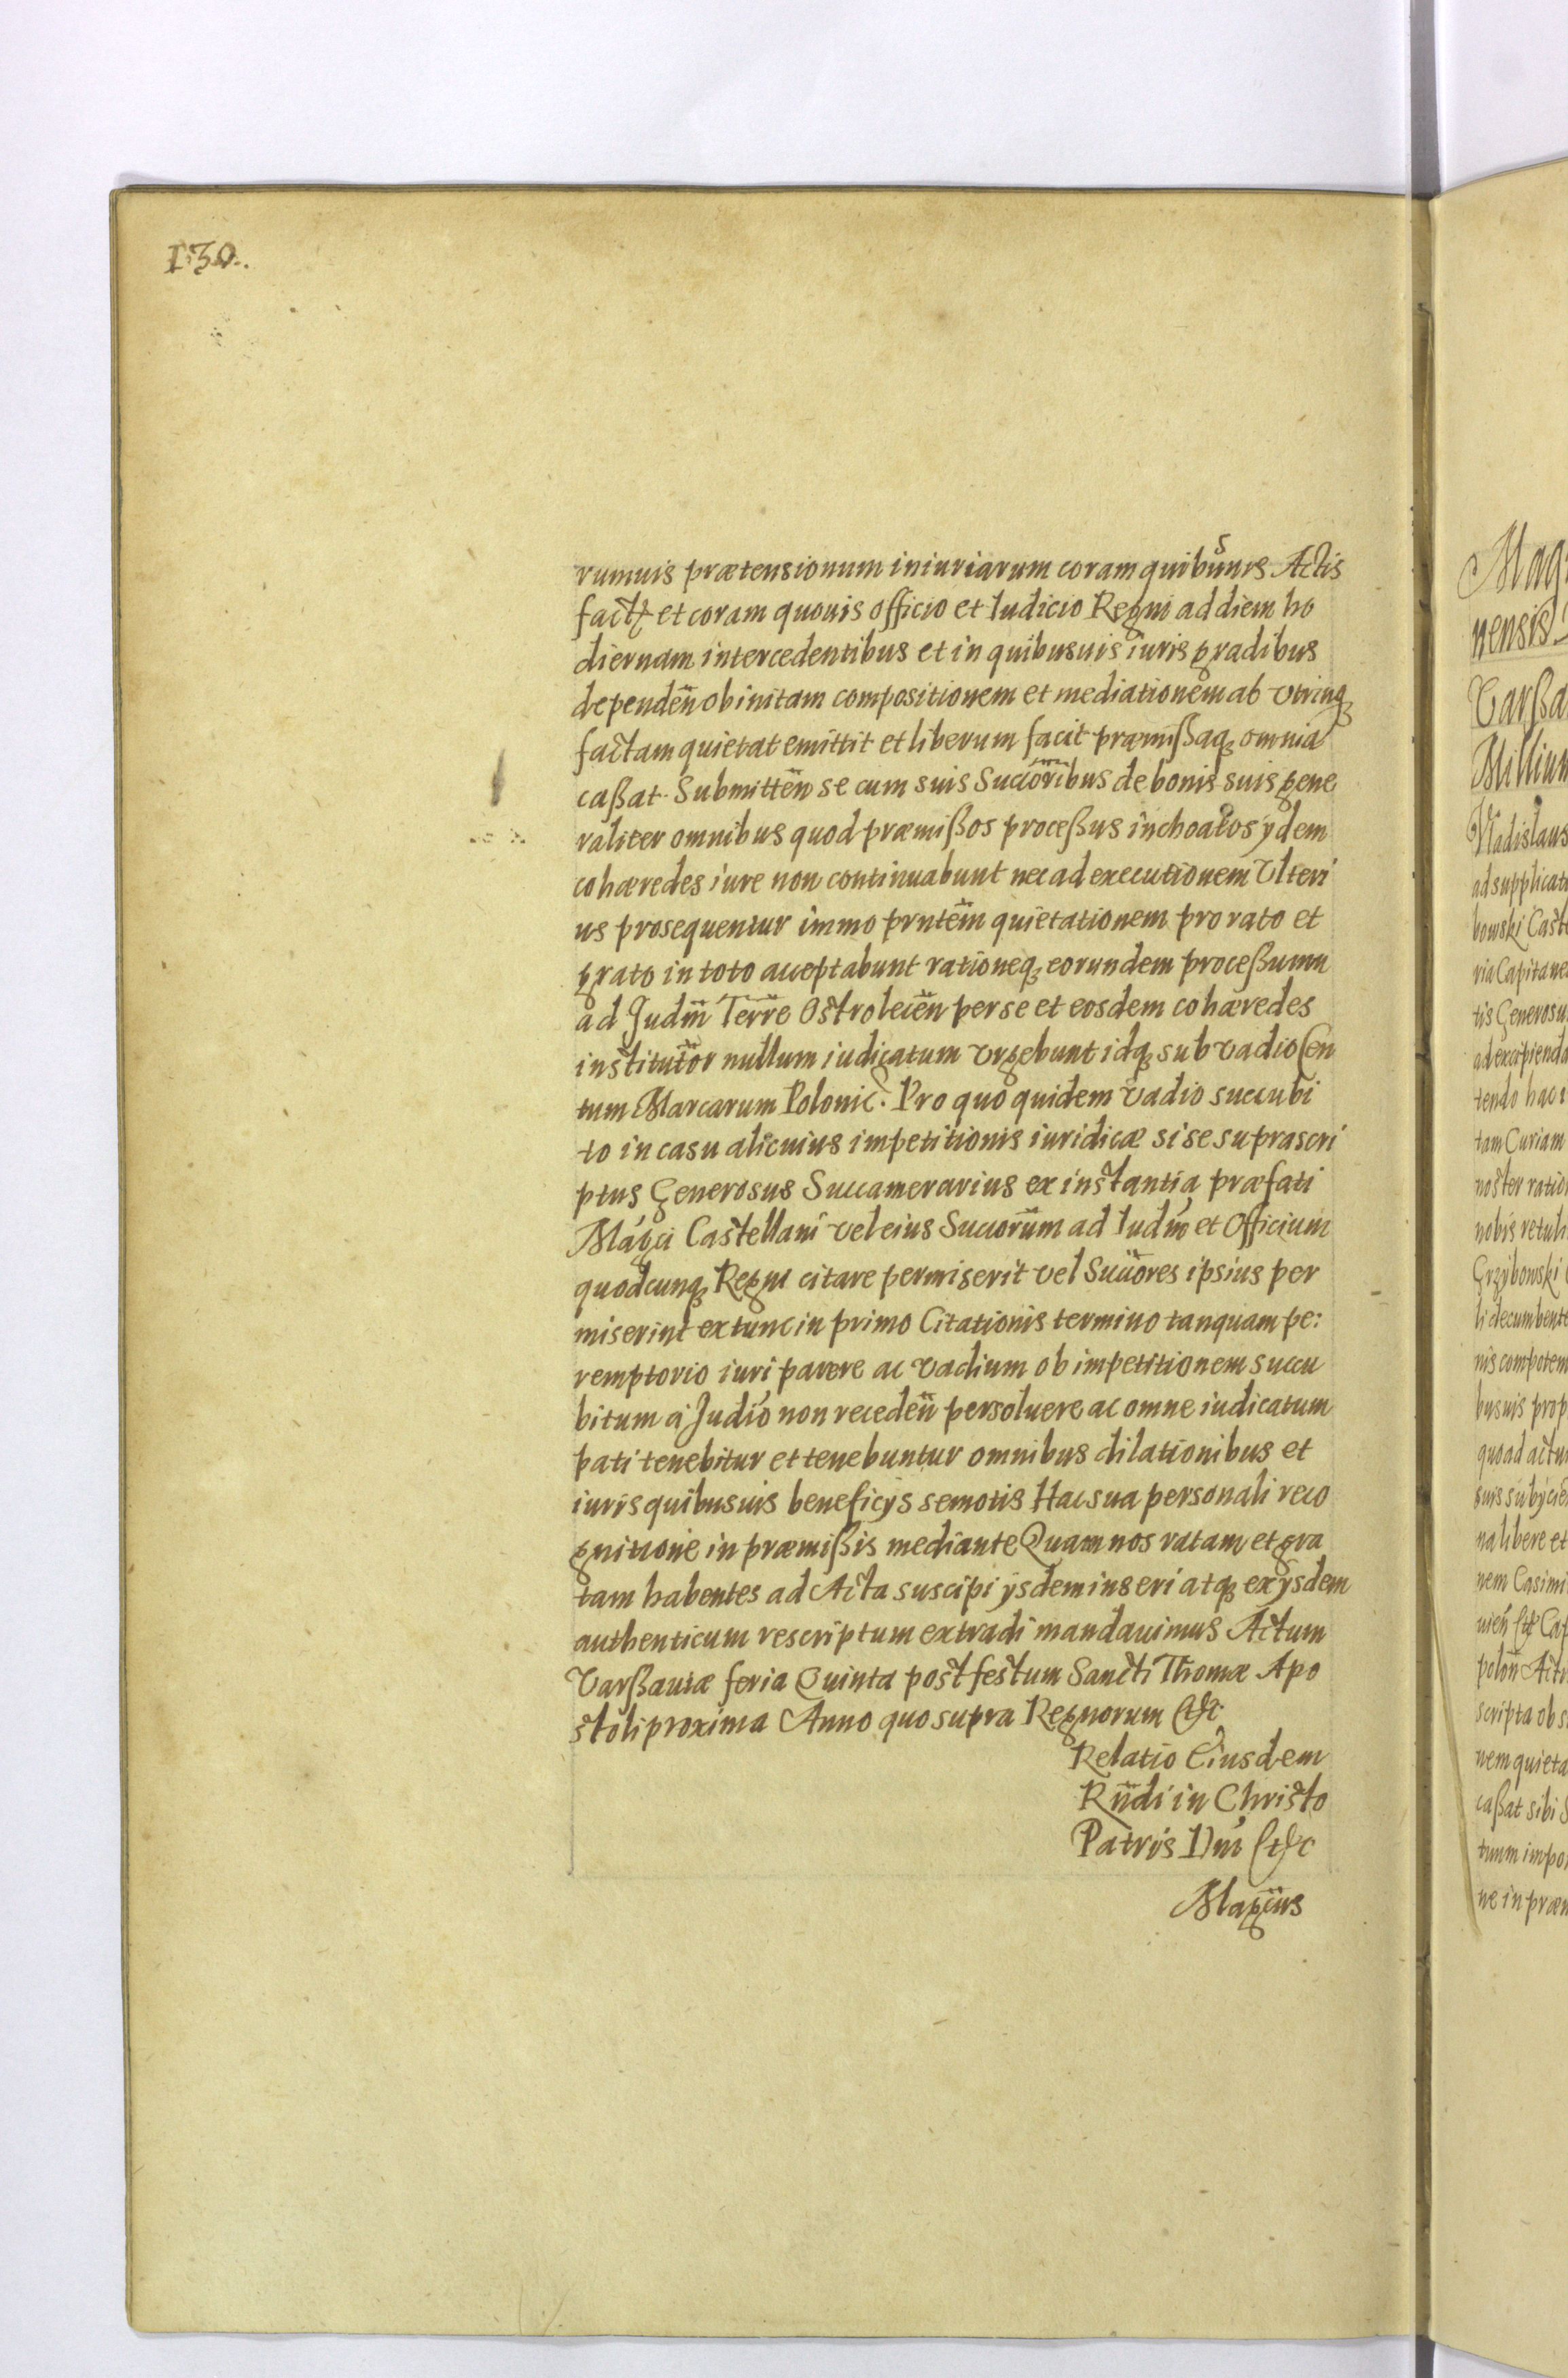 130.
rumuis prætensionum iniuriarum coram quibusuis Actis
et coram quouis officio et Iudicio Regni ad diem ho
diernam intercedentibus et in quibusuis iuris gradibus
dependeñ ob initam compositionem et mediationem ab vtrinq
factam quietat emittit et liberum facit præmißaq omnia
caßat. Submitteñ se cum suis Succoribus de bonis suis gene
raliter omnibus quod præmißos proceßus inchoatos ydem
cohæredes iure non continuabunt nec ad executionem Vlteri
us prosequentur immo prntem quietationem pro rato et
grato in toto acceptabunt rationeq eorundem proceßuum
ad Judm Terre Ostroleceñ per se et eosdem cohæredes
institutor nullum iudicatum vrgebunt idq sub vadio Cen
tum Marcarum Polonic. Pro quo quidem vadio succubi
to in casu alicuius impetitionis iuridicæ si se suprascri
ptus Generosus Succamerarius ex instantia præfati
Magci Castellani vel eius Succorum ad Iudm et Officium
quodcunq Regni citare permiserit vel Succores ipsius per
miserint extunc in primo Citationis termino tanquam pe:
remptorio iuri parere ac vadium ob impetitionem succu
bitum à Judio non recedeñ persoluere ac omne iudicatum
pati tenebitur et tenebuntur omnibus dilationibus et
iuris quibusuis beneficÿs semotis Hac sua personali reco
gnitione in præmißis mediante Quam nos ratam et gra
tam habentes ad Acta suscipi ÿsdem inseri atq ex ÿsdem
authenticum rescriptum extradi mandauimus Actum
Varßauiæ feria Quinta post festum Sancti Thomæ Apo
stoli proxima Anno quo supra Regnorum etc
Relatio Eiusdem
Rndi in Christo
Patris Dni etc
Magcus
Mag
nensis
Varßa
Millium
Vladislaus
ad supplicat
bowski Cast
ria Capitane
tis Generosu
ad excipienda
tendo hac
tam Curiam
noster ratio
nobis retuli
Grzybowski
li decumbente
nis compotem
busuis prop
quoad actu
suis subÿcie
na libere et
nem Casimi
polon
scripta ob
nem quieta
caßat sibi
tuum impo
ne in præm